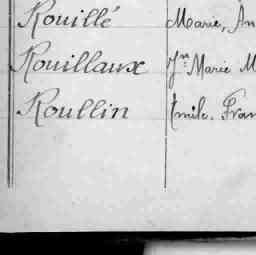 Rouillé Marie, An
Rouillaux Jn Marie M
Roullin Emile. Fran